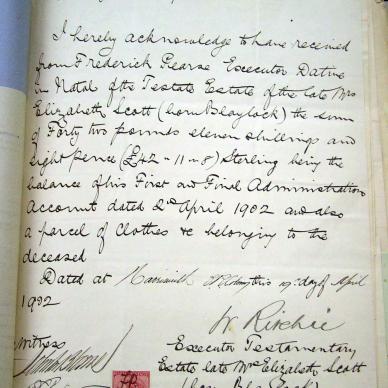 I hereby acknowledge to have received
from Frederick Pearse Executor Dative
in Natal of the Testate Estate of the late Mrs
Elizabeth Scott (born Blaylock) the sum
of Forty two pounds eleven shillings and
Eight pence (£42-11-8) Sterling being the
balance of his First and Final Administration
Account dated 2nd April 1902 and also
a parcel of Clothes &c belonging to the
deceased
Dated at this 19th day of April
1902
W Ritchie
Witness
Executor Testamentary
Estate late Mrs Elizabeth Scott
(born Blaylock)